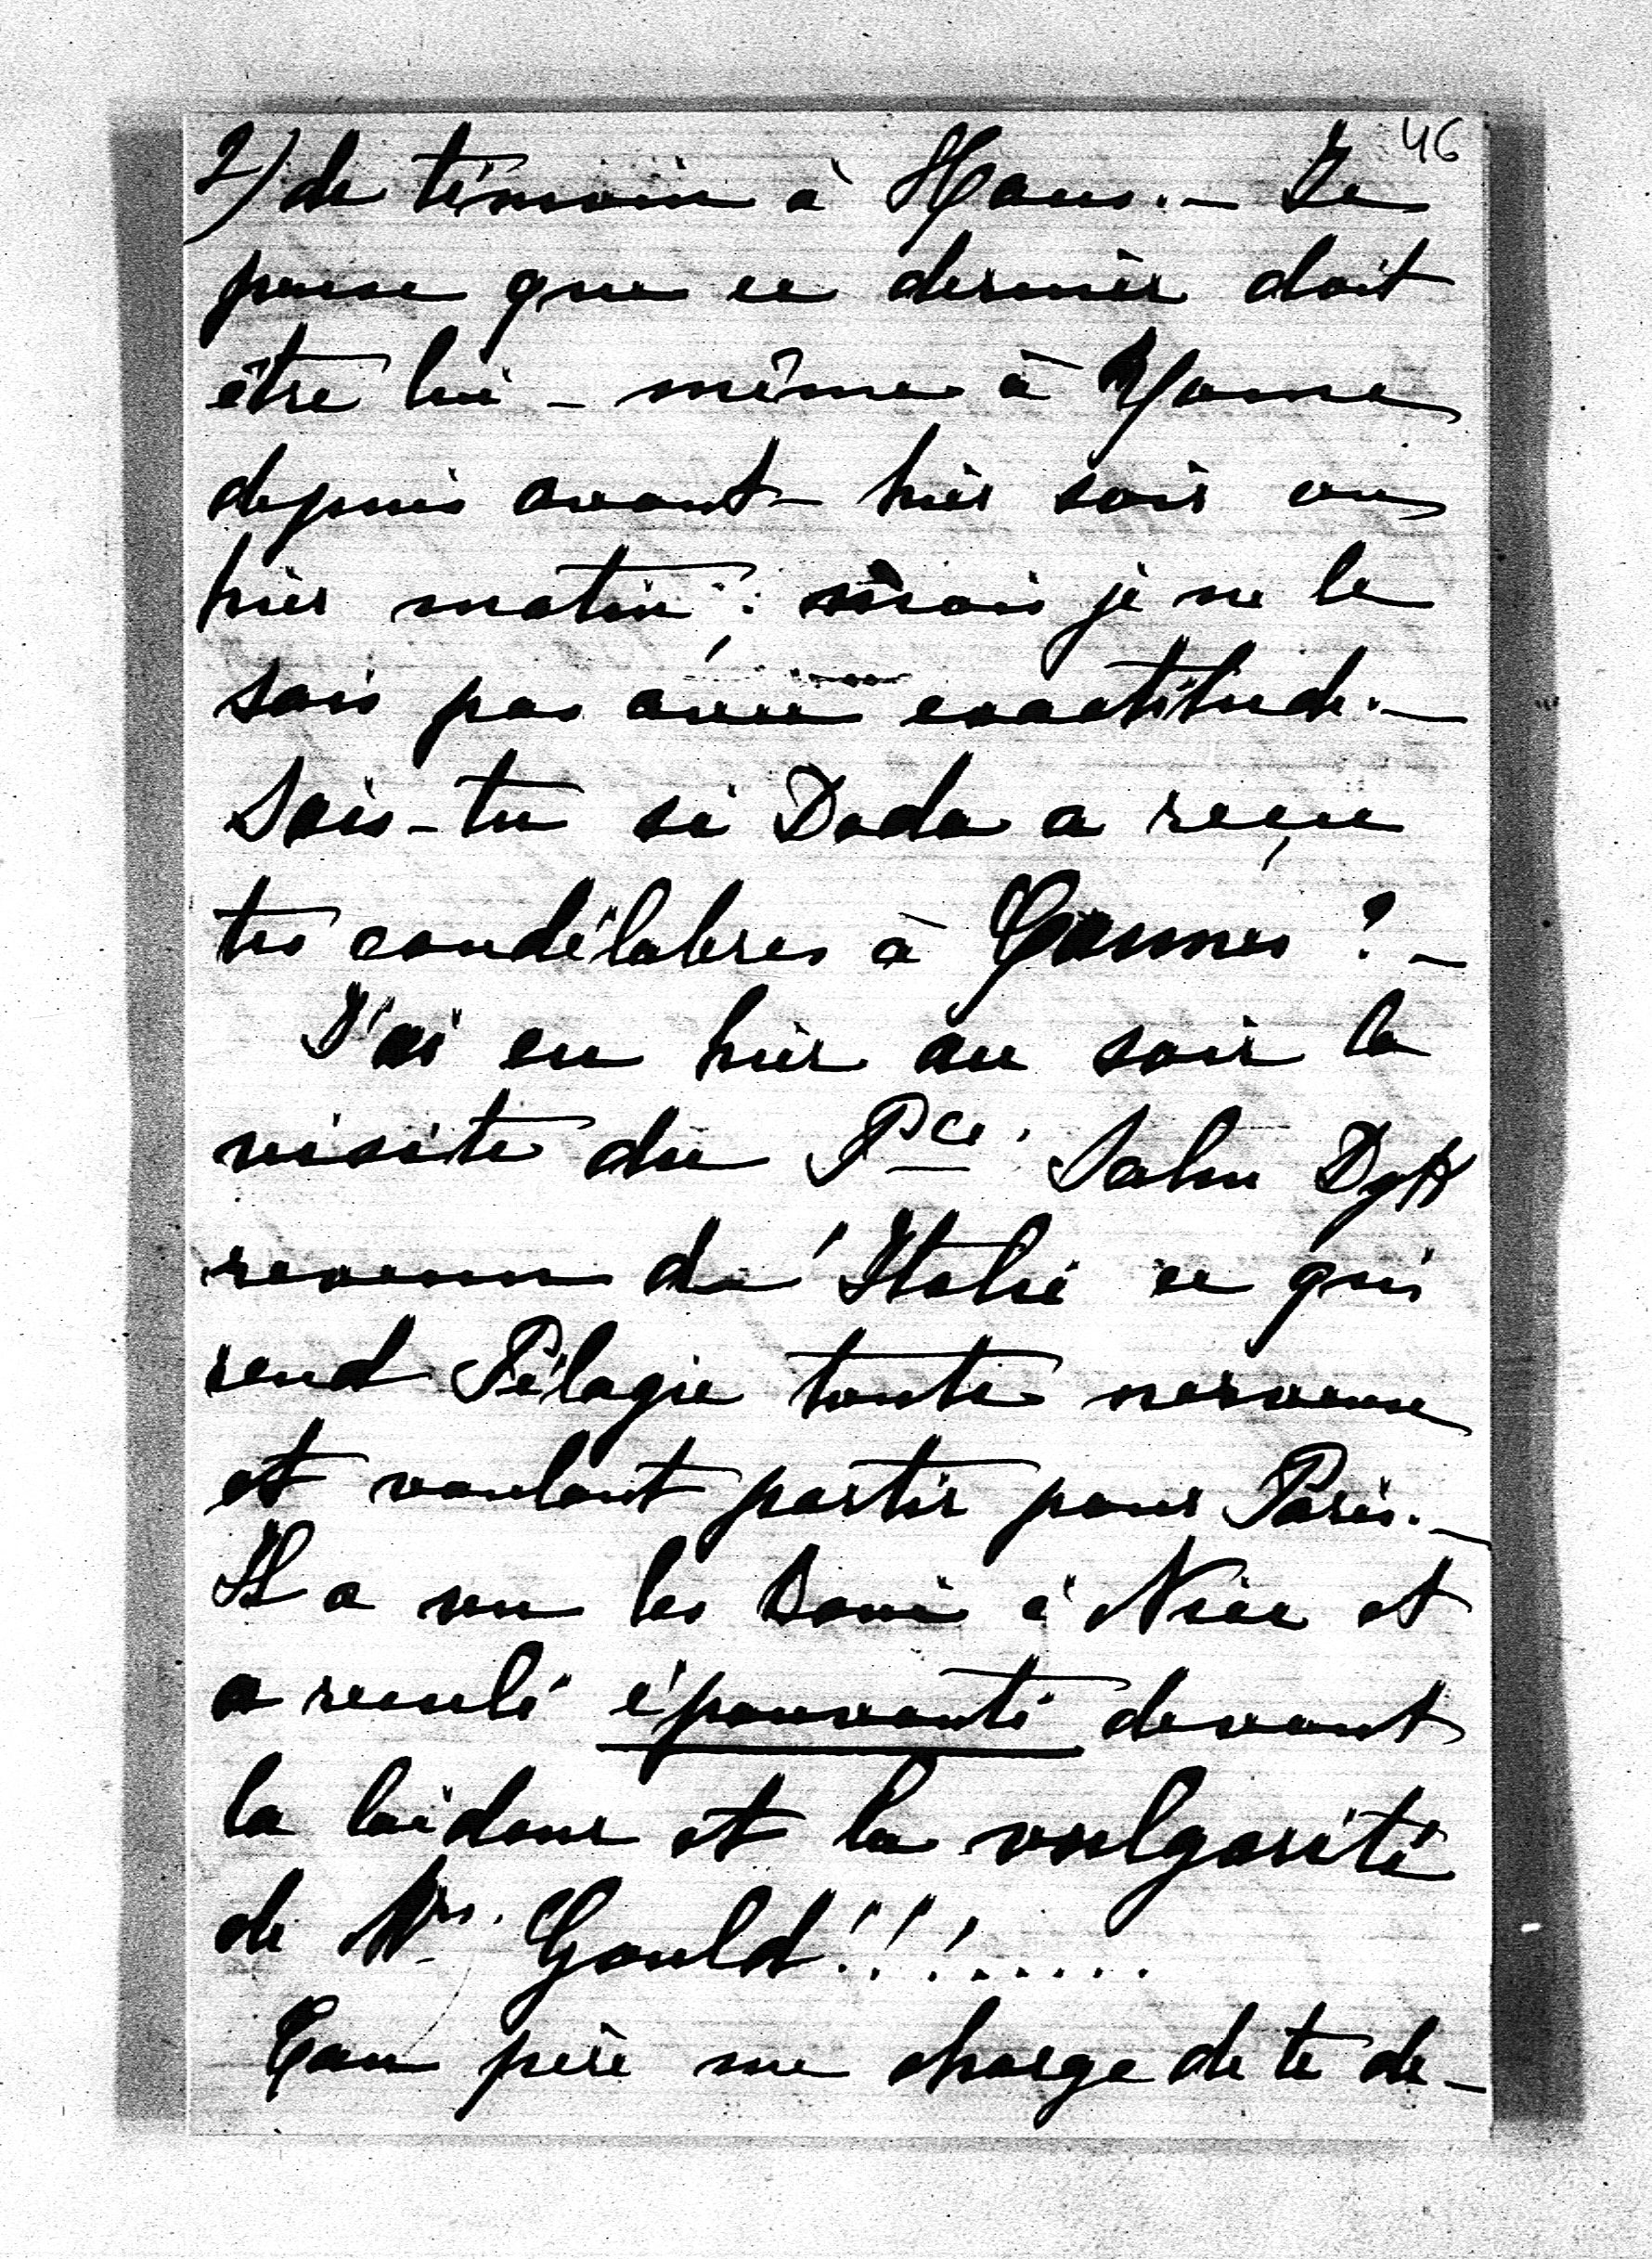 46
2) de témoin à Hans. — Je
pense que ce dernier doit
être lui-même à
depuis avant-hier soir ou
hier matin; mais je ne le
sais pas avec exactitude. —
Sais-tu si Dada a reçu
tes candélabres à Cannes ? —
J'ai eu hier au soir la
visite du Pce. Salm Dyk
revenu de l'Italie ce qui
rend Pélagie toute nerveuse
et voulant partir pour Paris. —
Il a vu les à Nice et
a reculé épouvanté devant
la laideur et la vulgarité
de Mrs. Gould!!!......
Ton père me charge de te de-